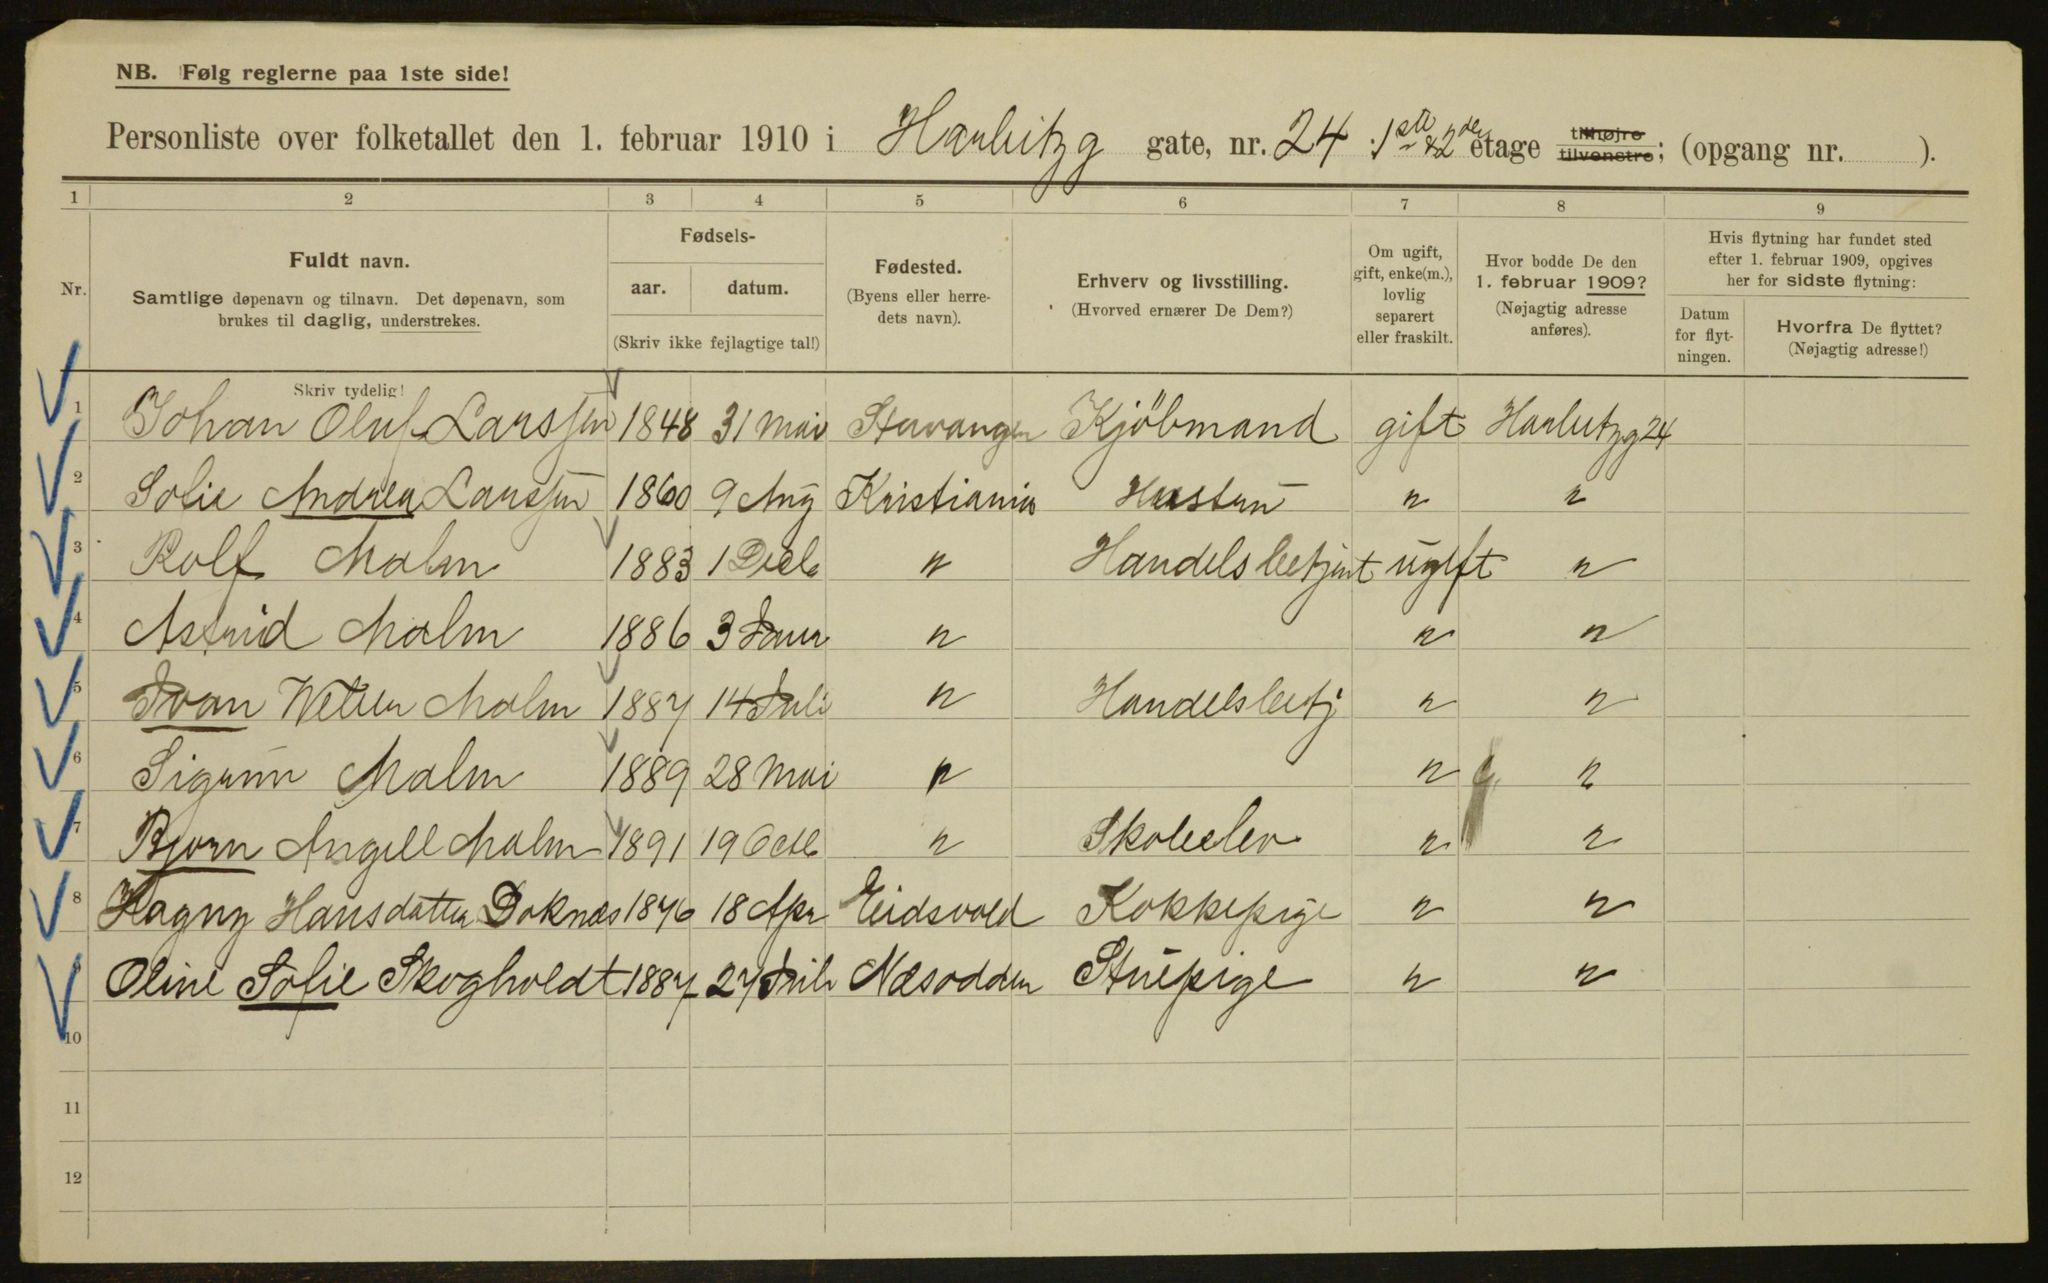 NB. Følg reglerne paa 1ste side!
Personliste over folketallet den 1. februar 1910 i Harbitzg gate, nr. 24 1ste & 2den etage tilhøjre tilvenstre; (opgang nr. ).
1 2 3 4 5 6 7 8 9
Nr. Fuldt navn. Samtlige døpenavn og tilnavn. Det døpenavn, som brukes til daglig, understrekes.
Fødsels- aar. datum. (Skriv ikke fejlagtige tal!)
Fødested. (Byens eller herredets navn).
Erhverv og livsstilling. (Hvorved ernærer De Dem?)
Om ugift, gift, enke(m.), lovlig separert eller fraskilt.
Hvor bodde De den 1. februar 1909? (Nøjagtig adresse anføres).
Hvis flytning har fundet sted efter 1. februar 1909, opgives her for sidste flytning:
Datum for flytningen. Hvorfra De flyttet? (Nøjagtig adresse!)
Skriv tydelig!
1 Johan Oluf Larssen 1848 31 Mai Stavanger Kjöbmand gift Harbitzg 24
2 Sofie Andrea Larssen 1860 9 Aug Kristiania Hustru " "
3 Rolf Malm 1883 1 Decb " Handelsbetjent ugift "
4 Astrid Malm 1886 3 Janr " " "
5 Ivan Malm 1887 14 Juli " Handelsbetj " "
6 Sigrun Malm 1889 28 Mai " " "
7 Bjorn Angell Malm 1891 19 Octb " Skoleelev " "
8 Hagny Hansdatter Doknæs 1876 18 Apr Eidsvold Kokkepige " "
9 Oline Sofie Skogholdt 1887 27 Juli Næsodden Stuepige " "
10
11
12